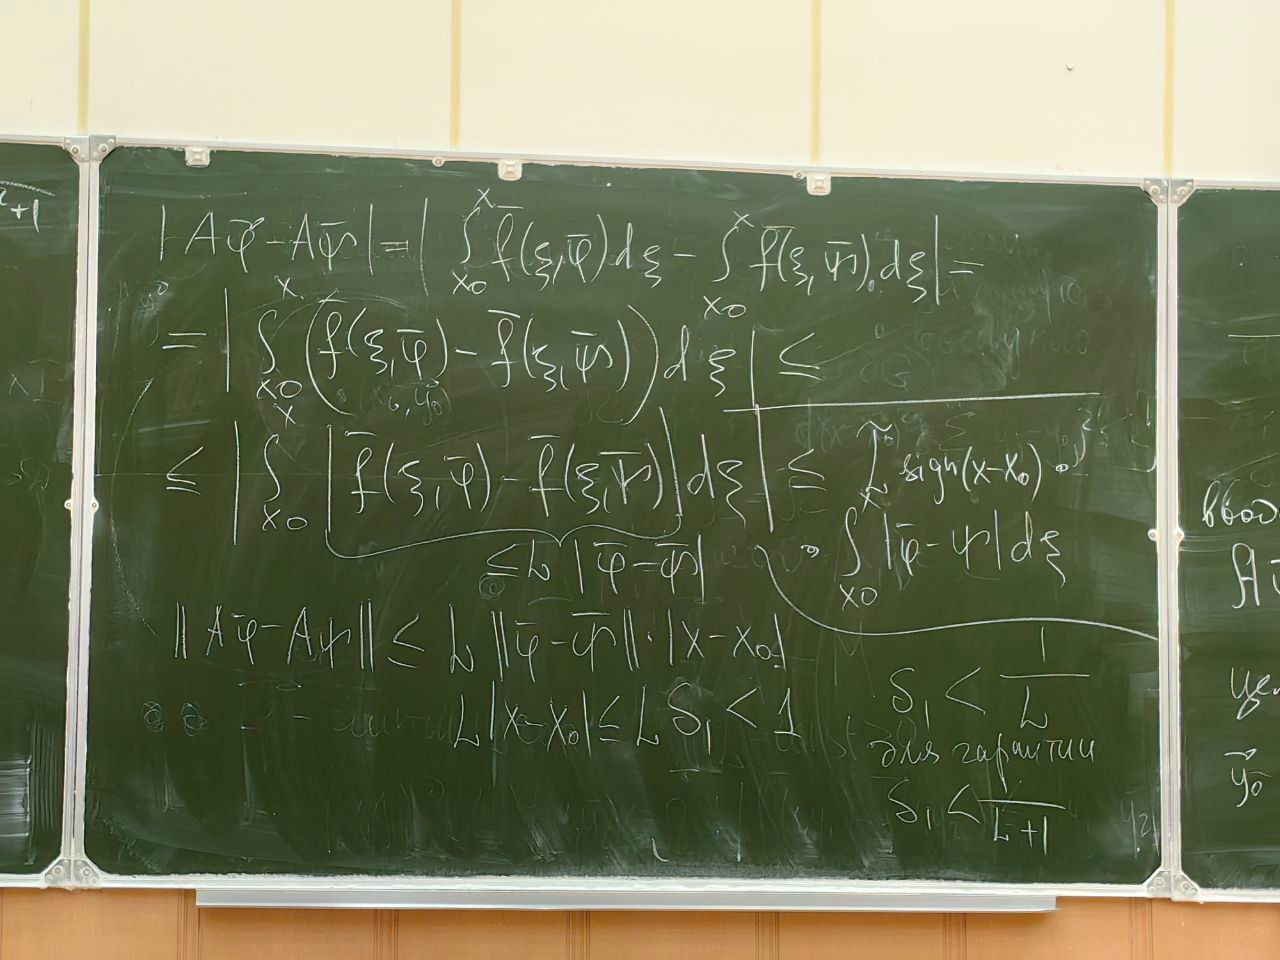 |Aφ̄ - Aψ̄| = | ∫_{x₀}^{x} f̄(ξ,φ̄)dξ - ∫_{x₀}^{x} f̄(ξ,ψ̄)dξ | =
= | ∫_{x₀}^{x} ( f̄(ξ,φ̄) - f̄(ξ,ψ̄) ) dξ | ≤
≤ | ∫_{x₀}^{x} | f̄(ξ,φ̄) - f̄(ξ,ψ̄) | dξ | ≤ L sign(x-x₀) •
≤ L |φ̄ - ψ̄|
• ∫_{x₀}^{x} |φ̄ - ψ| dξ
‖Aφ̄ - Aψ‖ ≤ L ‖φ̄ - ψ̄‖ · |x - x₀|
L |x - x₀| ≤ L δ₁ < 1
δ₁ < 1/L
для гарантии
δ₁ < 1/(L+1)
+1
ввод
ȳ₀